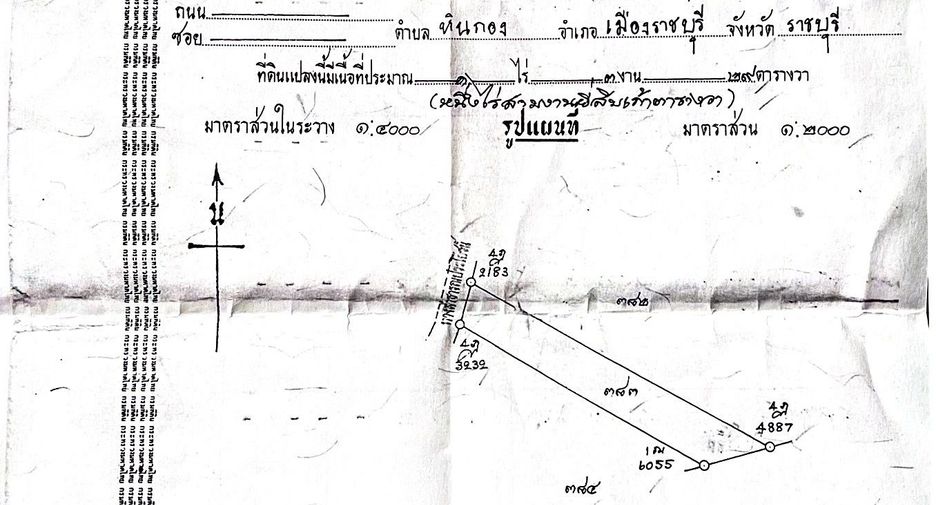 ถนน
ซอย ตำบล หินกอง อำเภอ เมืองราชบุรี จังหวัด ราชบุรี
ที่ดินแปลงนี้มีเนื้อที่ประมาณ ๑ ไร่ ๓ งาน ๒๙ ตารางวา
(หนึ่งไร่สามงานยี่สิบเก้าตารางวา)
มาตราส่วนในระวาง ๑:๔๐๐๐ รูปแผนที่ มาตราส่วน ๑:๒๐๐๐
น
ทางสาธารณประโยชน์
2183
๓๘๒
3232
๓๘๓
4887
6055
๓๘๔